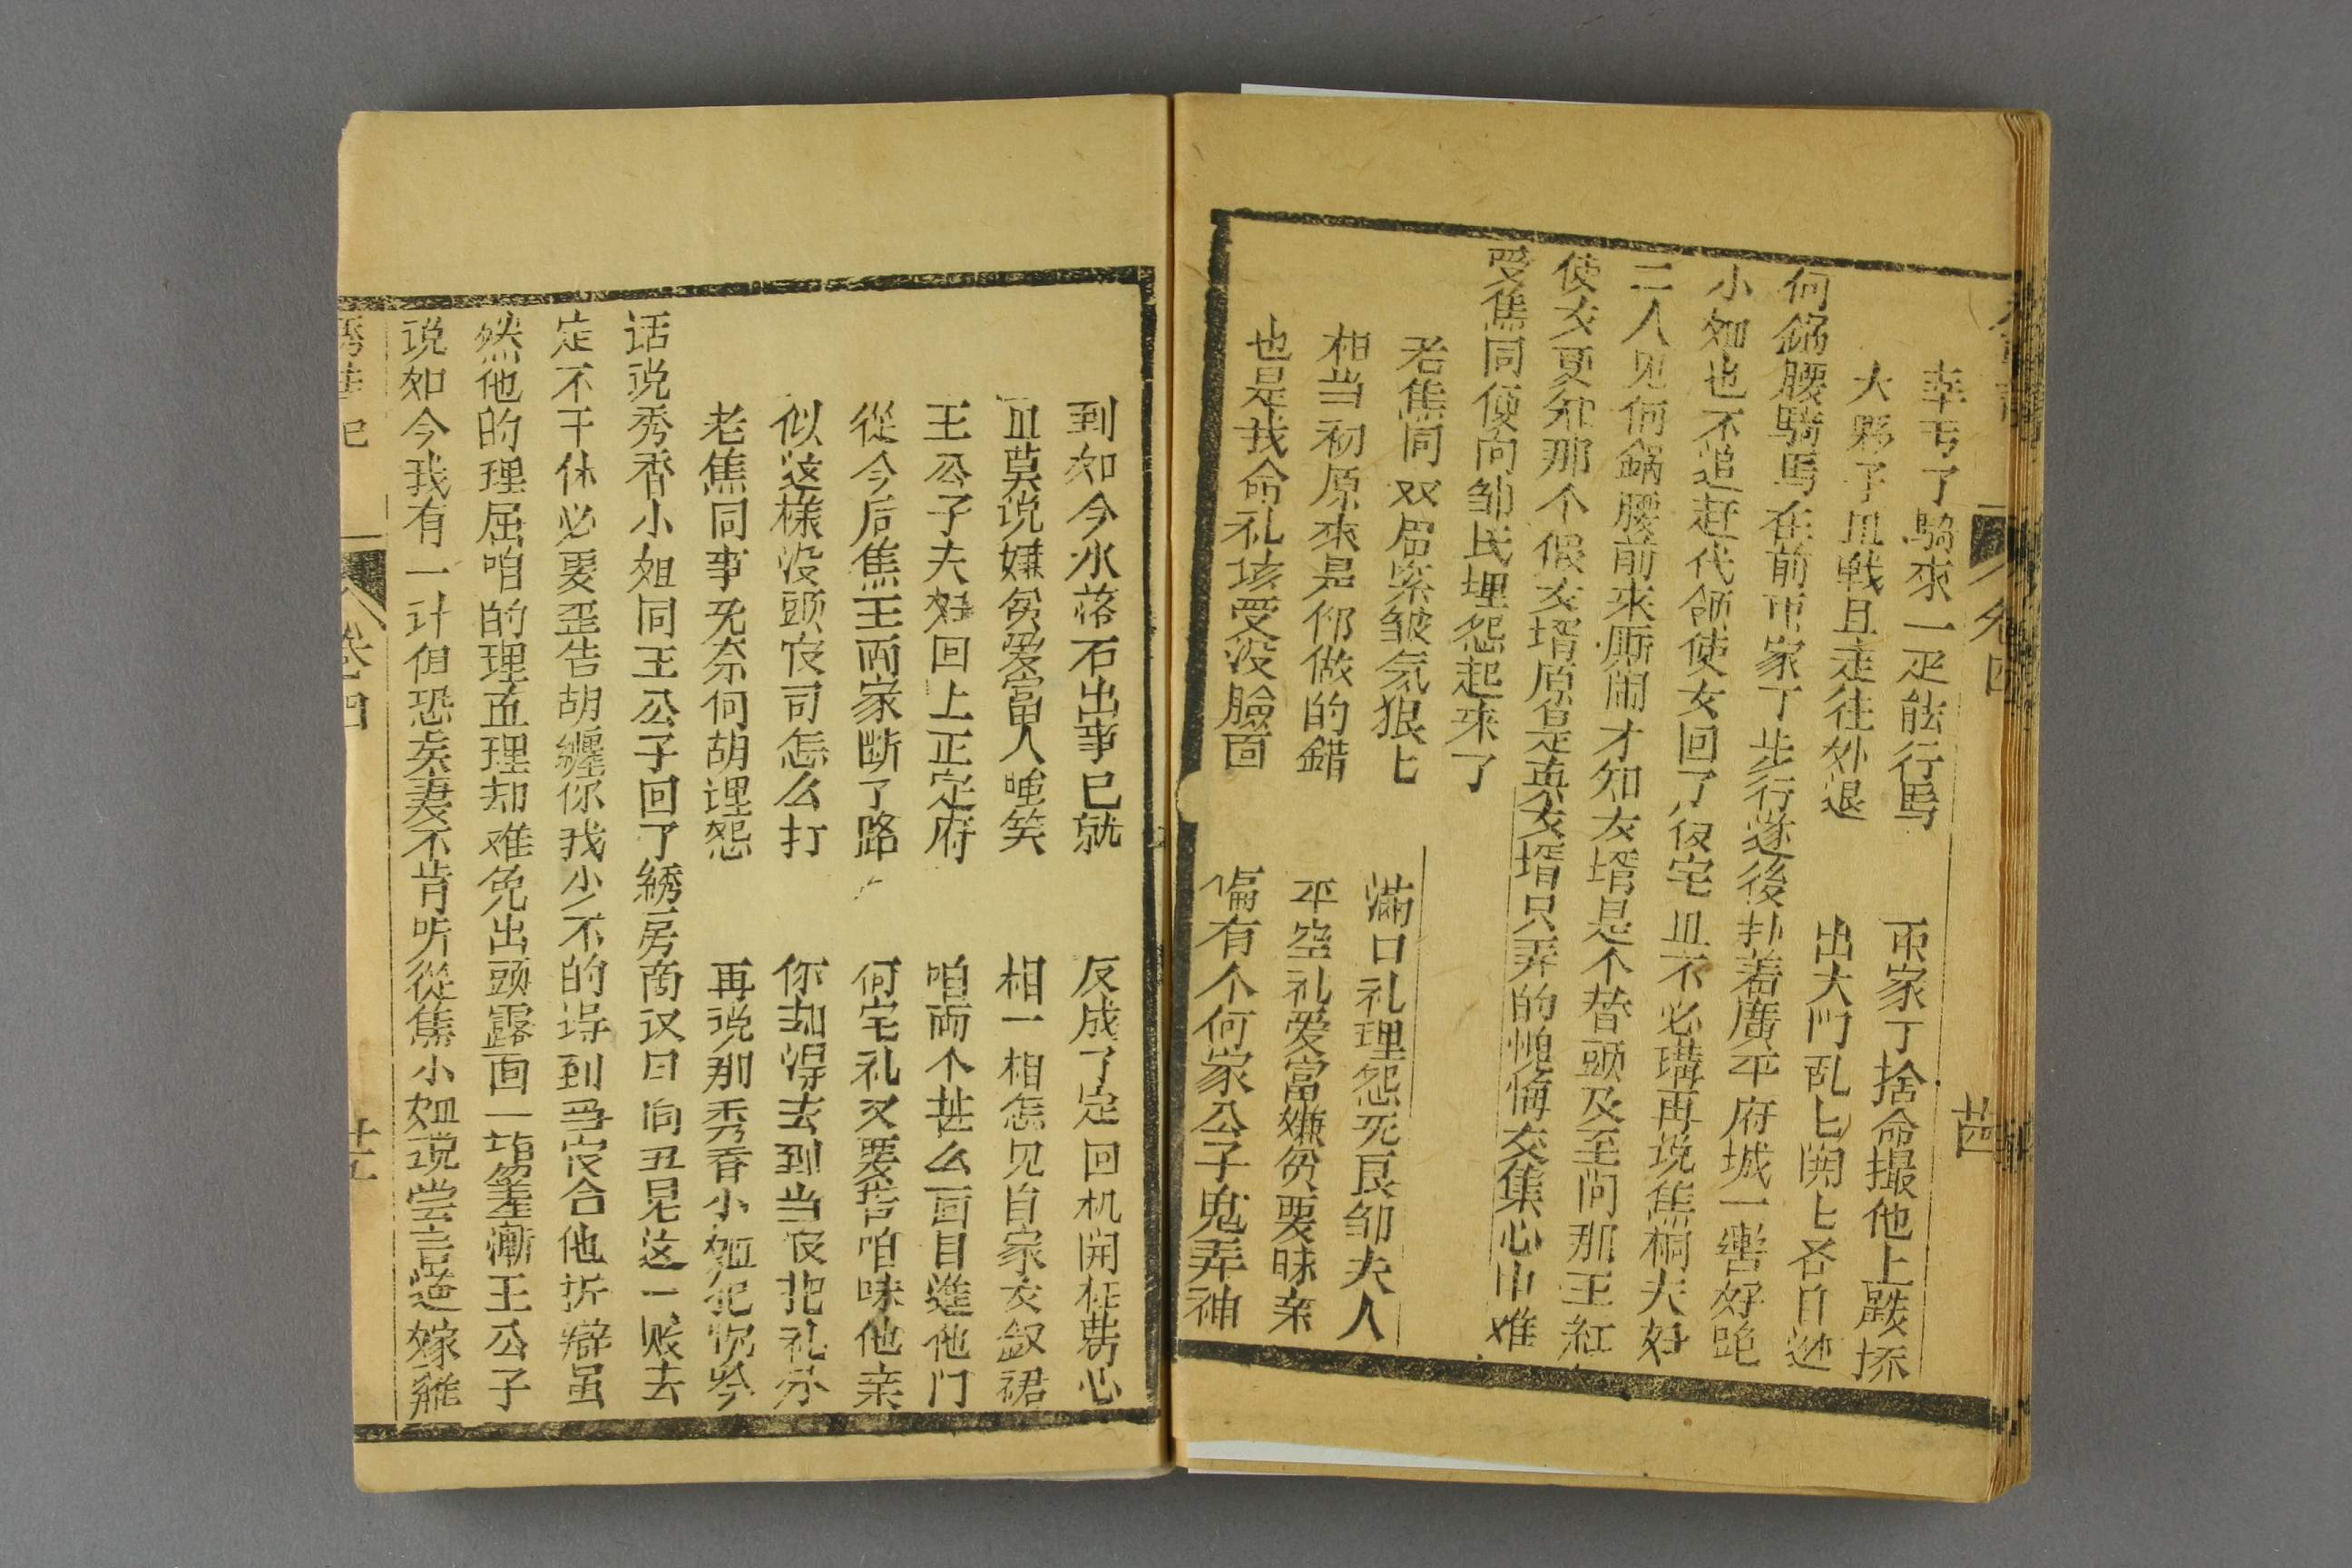 幸亏了騎來一疋能行馬　帀家丁捨命撮他上跋抔
大夥子且戰且走往外退　出大門乱匕開匕各自逩
何鍋腰騎馬在前帀家丁步行遂後扑着廣平府城一轡好跑
小姐也不追赶代領使女回了後宅且不必講再说焦桐夫妇
二人见何鍋腰前来厮闹才知女壻是个替頭及至问那王紅
使女更知那个假女壻原是真女壻只弄的愧悔交集心中难
受焦同便向邹氏埋怨起来了
老焦同双眉紧皱気狠匕　滿口礼理怨死良邹夫人
相当初原來是你做的錯　平空礼爱富嫌贫要昧亲
也是我命礼该受没臉面　偏有个何家公子鬼弄神
卷四
廿四
到如今水落石出事已就　反成了定回机開枉劳心
且莫说嫌贫爱富人唾笑　相一相怎见自家女釵裙
王公子夫妇回上正定府　咱两个甚么面目進他门
從今后焦王两家断了路　何宅礼又要告咱昧他亲
似这樣没頭官司怎么打　你却得去到当官把礼分
老焦同事死奈何胡理怨　再说那秀香小姐犯忱吟
话说秀香小姐同王公子回了綉房商议曰向丑児这一败去
定不干休必要歪告胡纒你我少不的得到当官合他折辯虽
然他的理屈咱的理直理却难免出頭露面一塲羞慚王公子
说如今我有一计但恐矣妻不肯听從焦小姐说尝言道嫁雞
綉鞋记
卷四
廿五